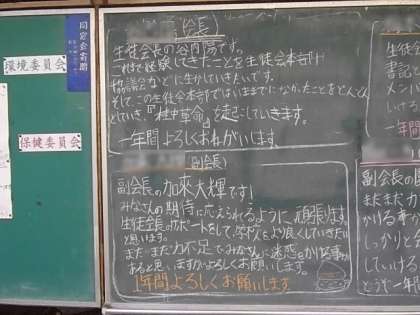 環境委員会
保健委員会
会長
生徒会長の
です。
これまで経験してきたことを生徒会本部や
協議会などに生かしていきたいです。
そして、この生徒会本部ではいままでになかったことをどんどん
していき、『桂中革命』を起こしていきます。
一年間よろしくおねがいします
副会長
副会長の加來大輝です!
みなさんの期待に応えられるように、頑張ります
生徒会長のサポートをして、本校をより良くしていきたい
と思います。
まだまだ力不足でみなさんに迷惑をかける事が
あると思いますがよろしくお願いします。
1年間よろしくお願いします
生徒会
書記と
メンバ
していけ
一年
副会長の
まだまだ力
かける事か
しっかりと会
していけるよ
どうぞ一年